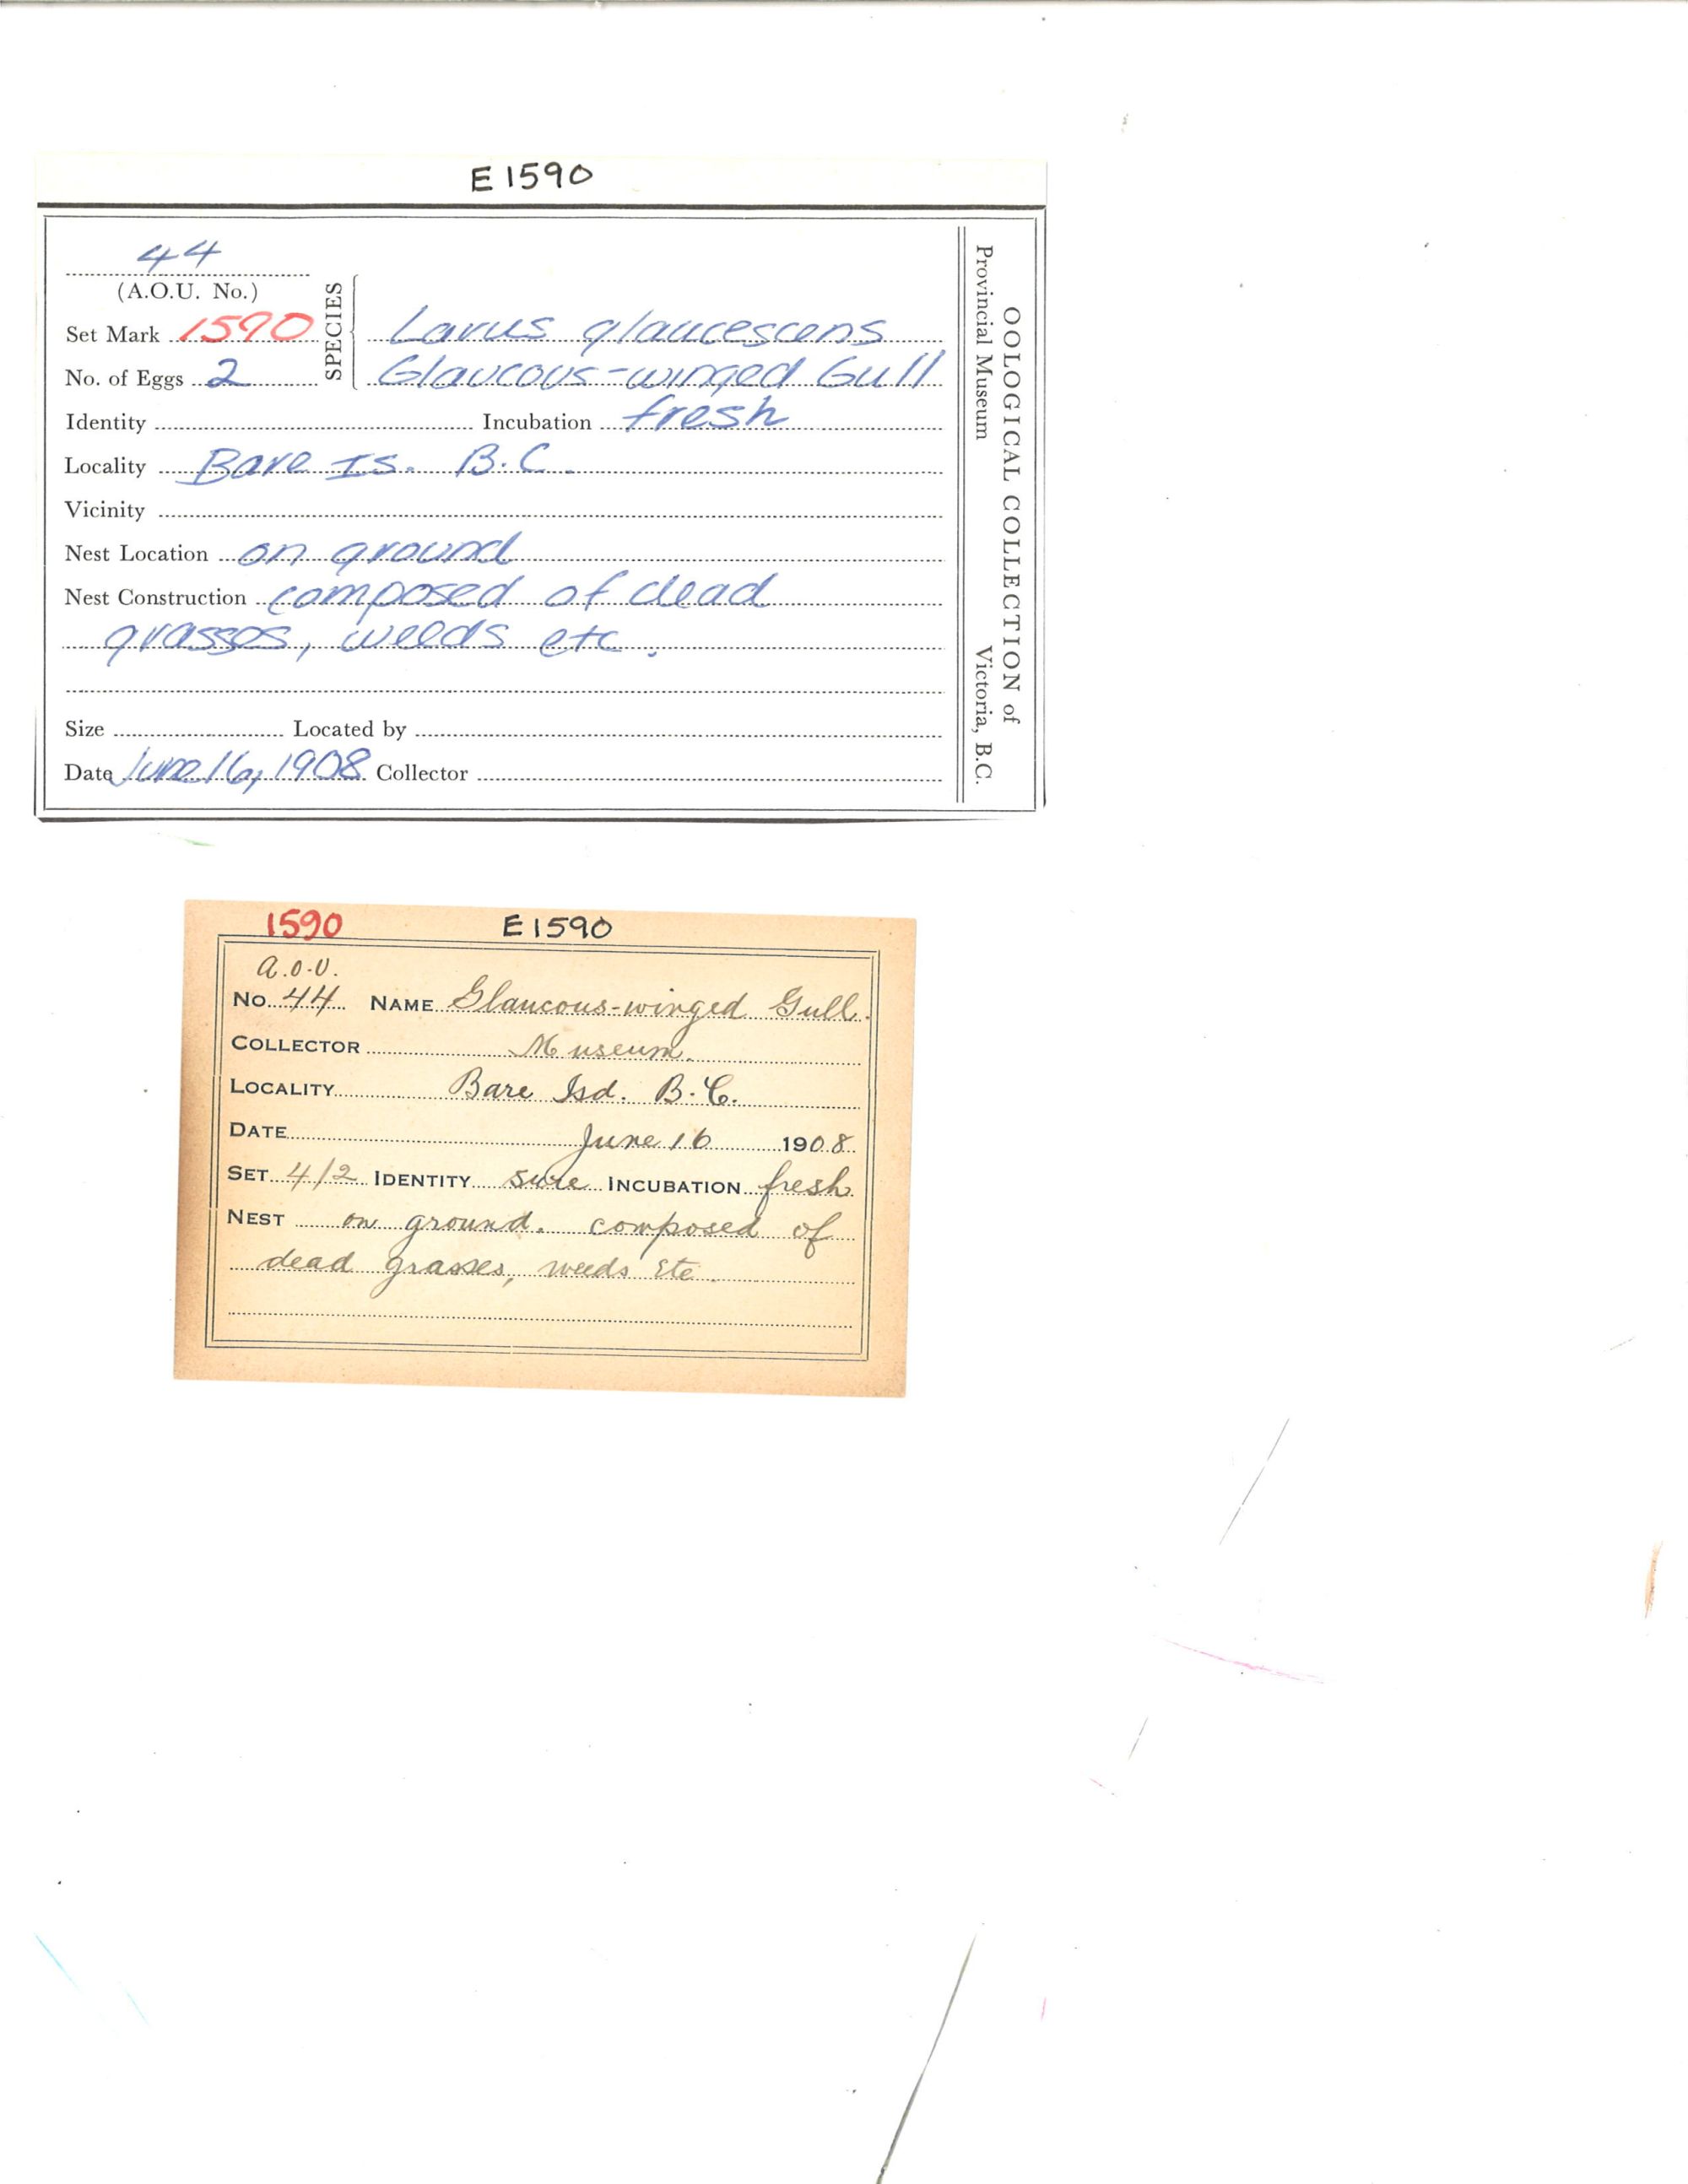 E 1590
44
(A.O.U. No.)
SPECIES
Set Mark 1590 Larus glaucescens
No. of Eggs 2 Glaucous-winged Gull
Identity Incubation fresh
Locality Bare Is. B.C.
Vicinity
Nest Location on ground
Nest Construction composed of dead
grasses, weeds etc.
Size Located by
Date June 16, 1908 Collector
OOLOGICAL COLLECTION of
Provincial Museum Victoria, B.C.
1590 E 1590
A.O.U.
No. 44 NAME Glaucous-winged Gull.
COLLECTOR Museum.
LOCALITY Bare Isd. B.C.
DATE June 16 1908
SET 4/2 IDENTITY sure INCUBATION fresh
NEST on ground. composed of
dead grasses, weeds etc.